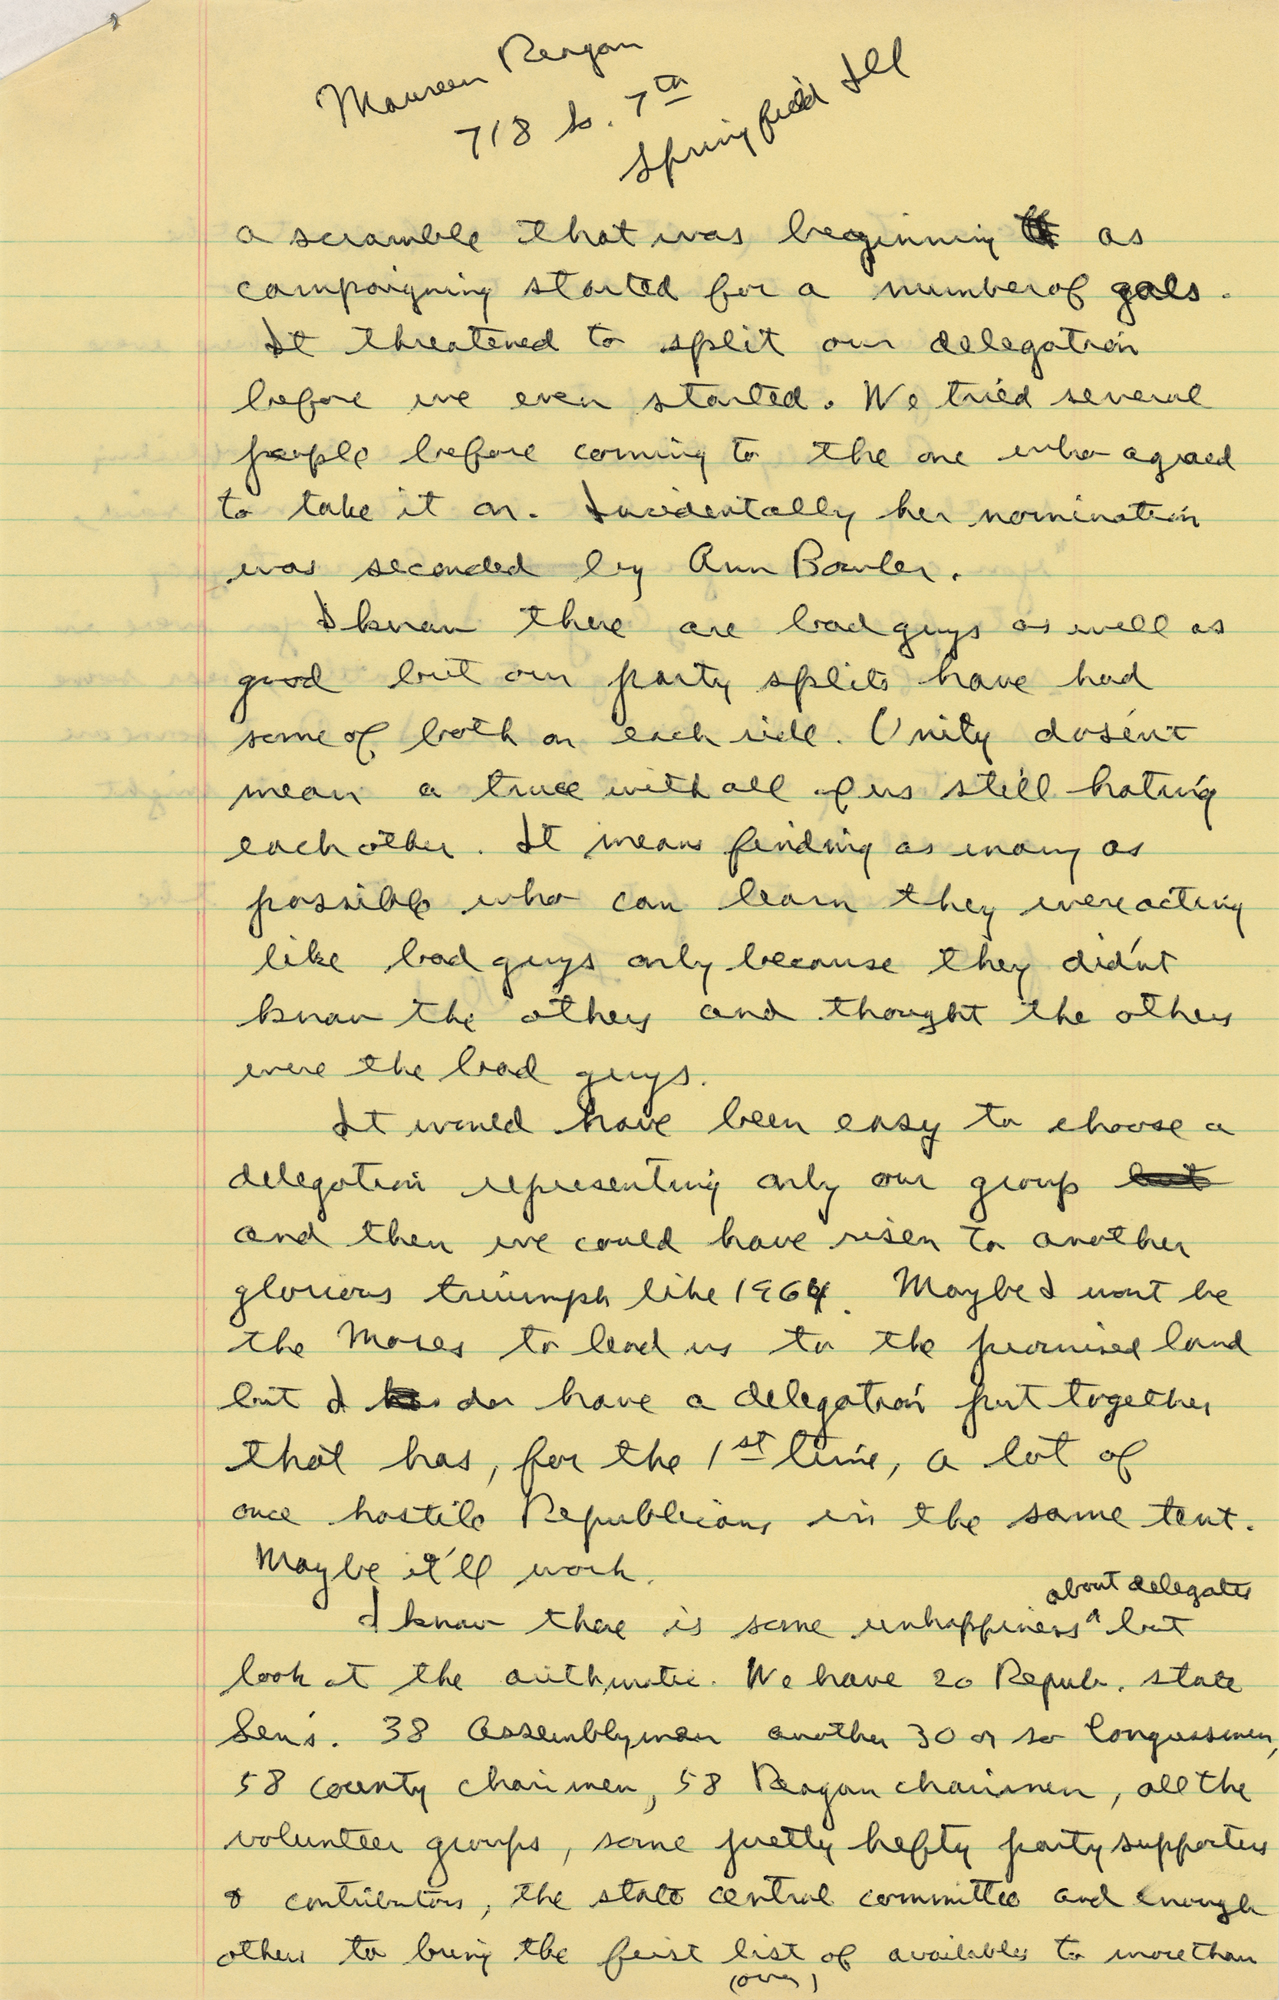 Maureen Reagan
718 So. 7th
Springfield Ill
a scramble that was beginning as
campaigning started for a number of gals.
It threatened to split our delegation
before we even started. We tried several
people before coming to the one who agreed
to take it on. Incidentally her nomination
was seconded by Ann Bowler.
I know there are bad guys as well as
good but our party splits have had
some of both on each side. Unity dosen't
mean a truce with all of us still hating
each other. It means finding as many as
possible who can learn they were acting
like bad guys only because they did'nt
know the others and thought the others
were the bad guys.
It would have been easy to choose a
delegation representing only our group but
and then we could have risen to another
glorious triumph like 1964. Maybe I wont be
the Moses to lead us to the promised land
but I do have a delegation put together
that has, for the 1st time, a lot of
once hostile Republicans in the same tent.
Maybe it'll work.
about delegates
I know there is some unhappiness ^ but
look at the arithmatic. We have 20 Repub. state
Sen's. 38 Assemblymen another 30 or so Congressmen,
58 county chairmen, 58 Reagan chairmen, all the
volunteer groups, some pretty hefty party supporters
& contributors, the state central committee and enough
others to bring the first list of availables to more than
(over)